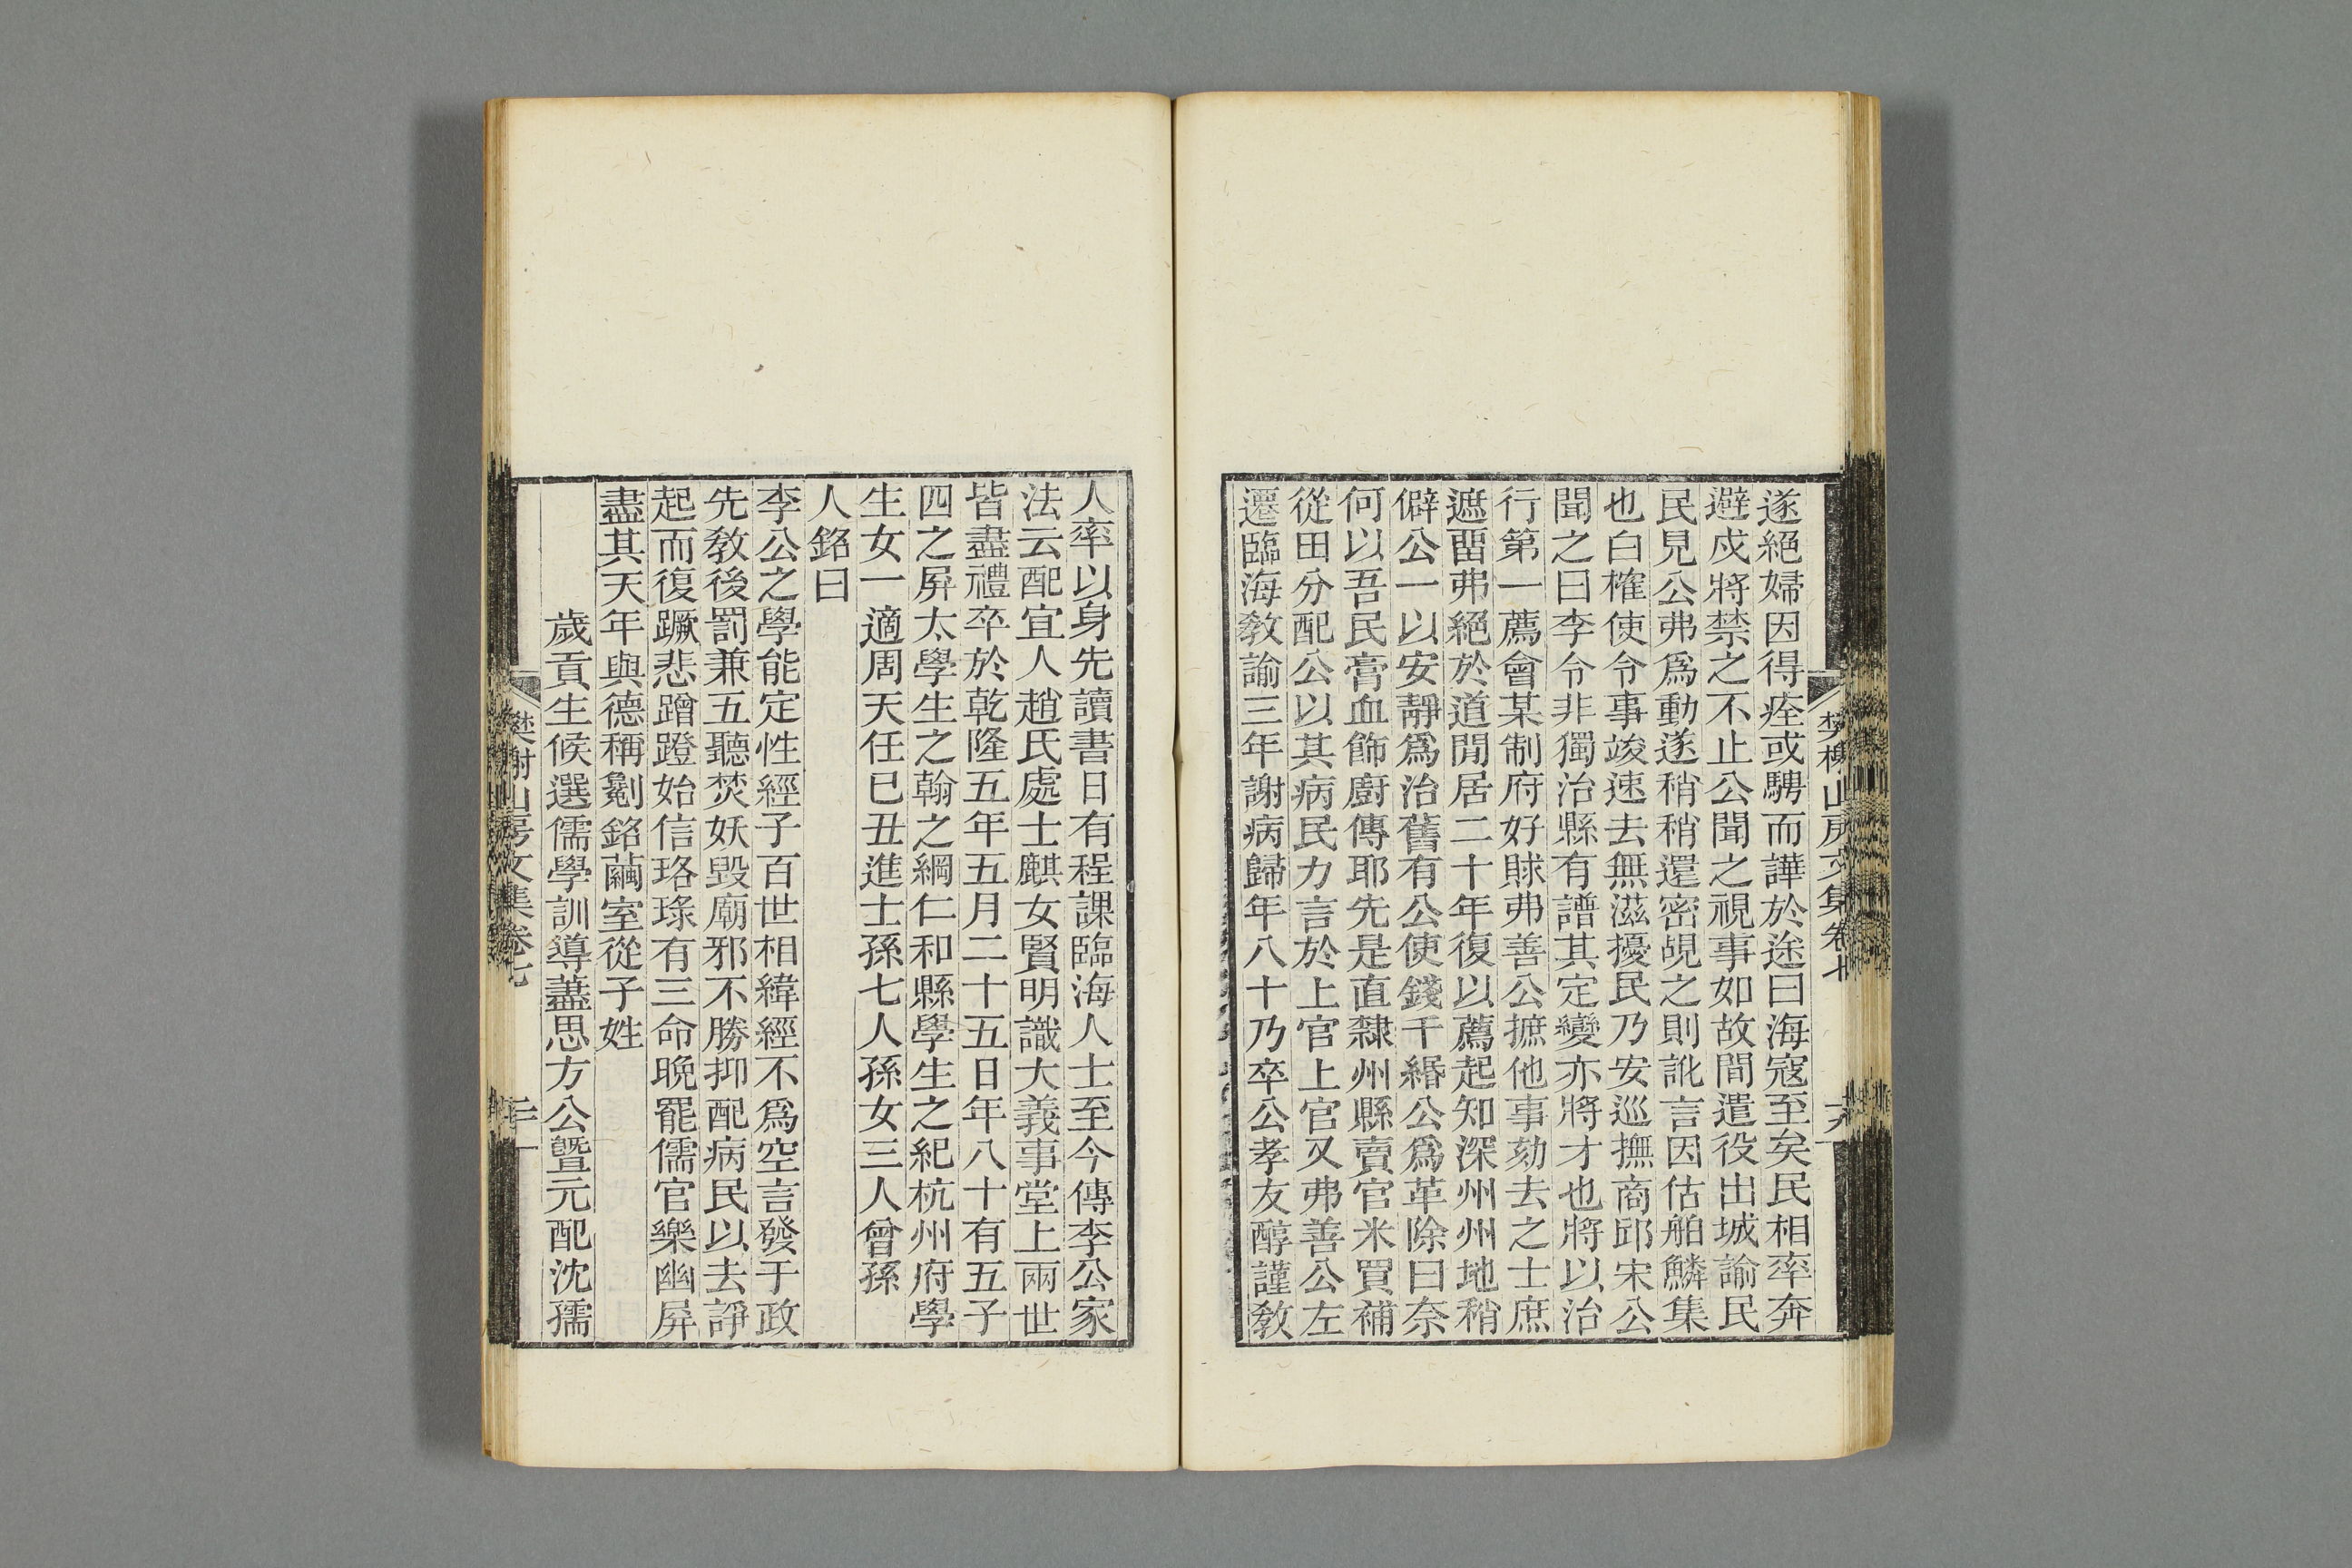 遂絕婦因得痊或騁而譁於途曰海寇至矣民相率奔
避戍將禁之不止公聞之視事如故間遣役出城諭民
民見公弗爲動遂稍稍還密覘之則訛言因估舶鱗集
也白榷使令事竣速去無滋擾民乃安巡撫商邱宋公
聞之曰李令非獨治縣有譜其定變亦將才也將以治
行第一薦會某制府好賕弗善公摭他事劾去之士庶
遮畱弗絕於道閒居二十年復以薦起知深州州地稍
僻公一以安靜爲治舊有公使錢千緡公爲革除曰奈
何以吾民膏血飾廚傳耶先是直隸州縣賣官米買補
從田分配公以其病民力言於上官上官又弗善公左
遷臨海敎諭三年謝病歸年八十乃卒公孝友醇謹敎
人率以身先讀書日有程課臨海人士至今傳李公家
法云配宜人趙氏處士麒女賢明識大義事堂上兩世
皆盡禮卒於乾隆五年五月二十五日年八十有五子
四之屏太學生之翰之綱仁和縣學生之紀杭州府學
生女一適周天任巳丑進士孫七人孫女三人曾孫
人銘曰
李公之學能定性經子百世相緯經不爲空言發于政
先敎後罰兼五聽焚妖毀廟邪不勝抑配病民以去諍
起而復蹶悲蹭蹬始信珞琭有三命晚罷儒官樂幽屏
盡其天年與德稱劖銘藟室從子姓
歲貢生候選儒學訓導藎思方公曁元配沈孺
樊榭山房文集卷七